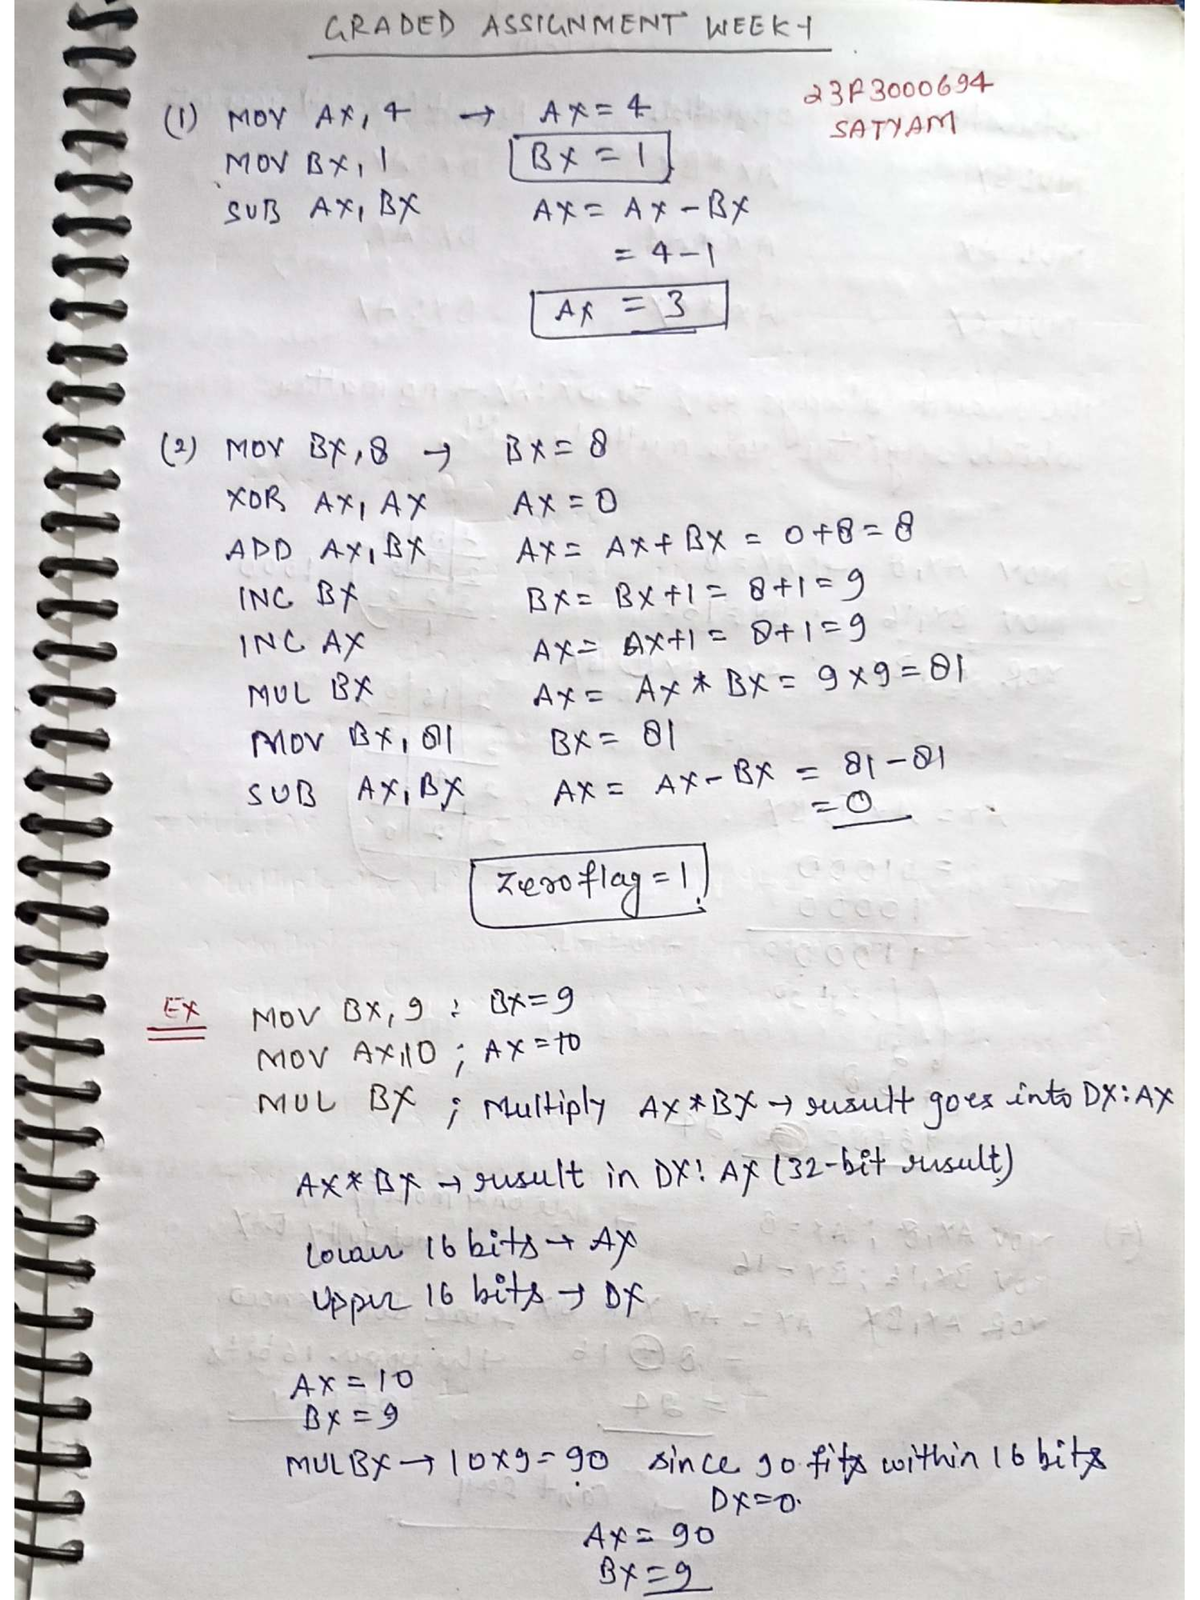 GRADED ASSIGNMENT WEEK-1
23F3000694
SATYAM
(1) MOV AX, 4 → AX = 4
MOV BX, 1 BX = 1
SUB AX, BX AX = AX - BX
= 4 - 1
AX = 3
(2) MOV BX, 8 → BX = 8
XOR AX, AX AX = 0
ADD AX, BX AX = AX + BX = 0+8 = 8
INC BX BX = BX+1 = 8+1 = 9
INC AX AX = AX+1 = 8+1 = 9
MUL BX AX = AX * BX = 9 x 9 = 81
MOV BX, 81 BX = 81
SUB AX, BX AX = AX - BX = 81 - 81
= 0
Zero flag = 1
EX MOV BX, 9 ; BX = 9
MOV AX, 10 ; AX = 10
MUL BX ; Multiply AX * BX → result goes into DX:AX
AX * BX → result in DX: AX (32-bit result)
Lower 16 bits → AX
Upper 16 bits → DX
AX = 10
BX = 9
MUL BX → 10 x 9 = 90 since 90 fits within 16 bits
DX = 0
AX = 90
BX = 9